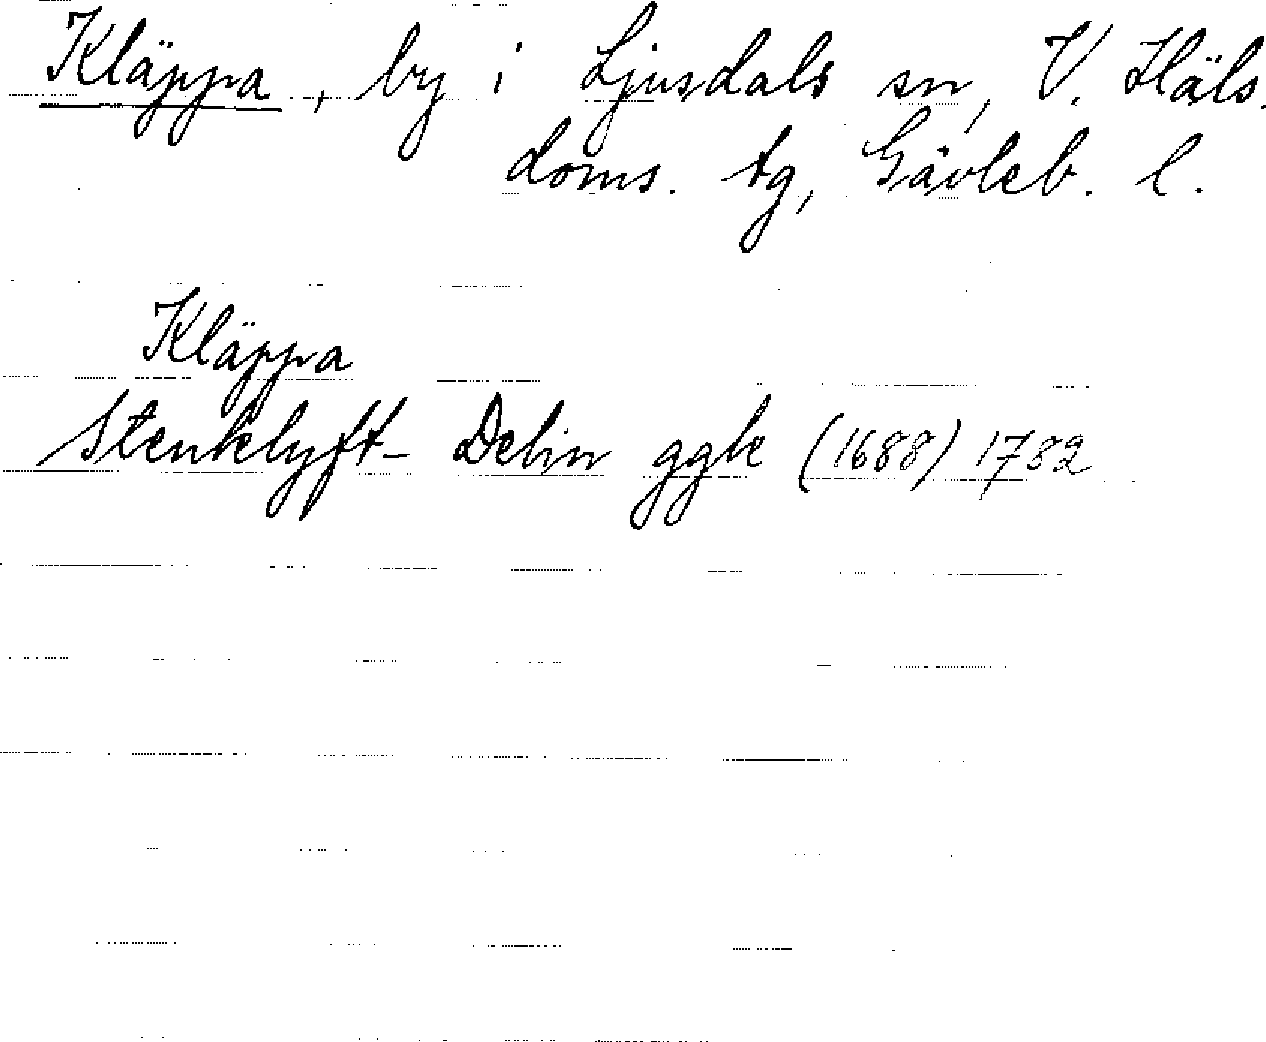 Kläppa, by i Ljusdals sn, V. Häls.
doms. tg, Gävleb. l.
Kläppa
Stenklyft- Delin ggk (1688) 1782